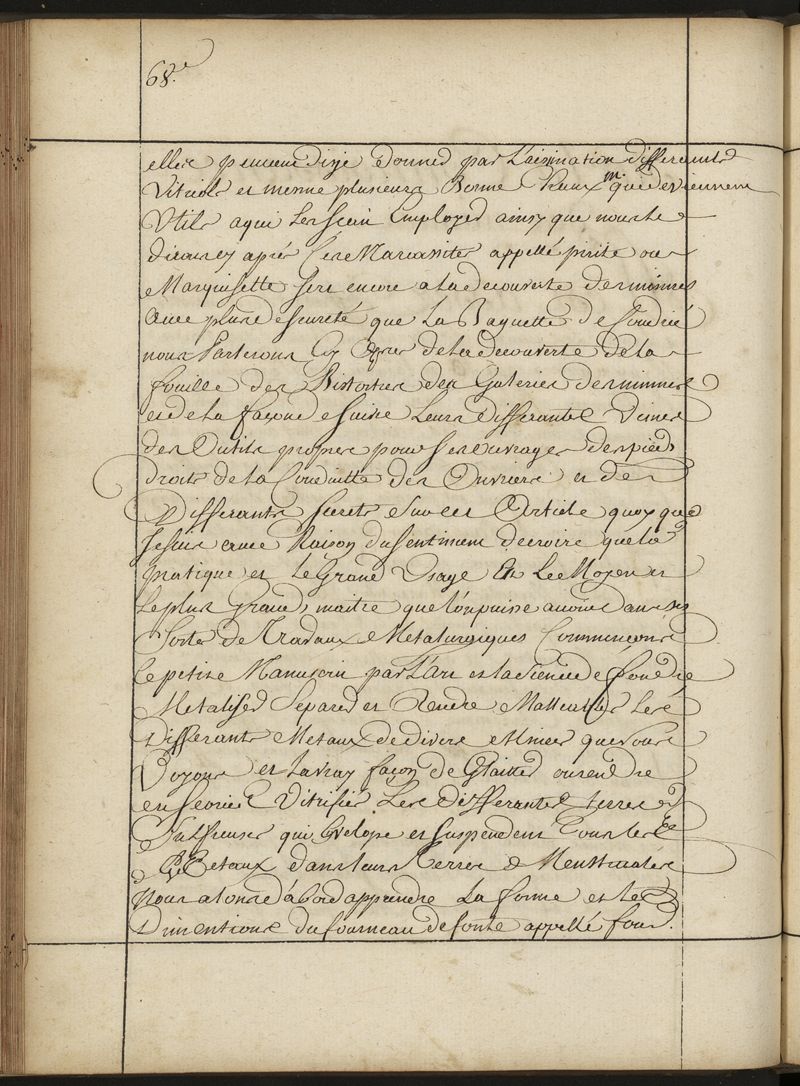 68.e
elles peuvent dis je donner par Laisination differents
Vitriols et mesme plusieurs Bonne Eaux m. qui deviennent
Utils a qui Les scait Employer ainsy que nous le
dirons cy apres Ces Marcassites appellé pirite ou
Marquisette sert encore a la decouverte des minnes
avec plus de seureté que La Baguette de Coudrié
nous Parlerons Cy apres de la decouverte de la
fouille des des Galeries des minnes
et de la façon de suivre Leurs differantes Veines
des Outils propres pour ses ouvrages des pieds
droits de la Conduitte des Ouvriers et de
Differants secrets sur cet Article quoy que
Je suis avec Raison du sentiment de croire que la
pratique et Le Grand Usage Est Le Moyen et
Le plus Grand maitre que l'on puisse avoir dans ses
Sorte de Travaux Metalurgiques Commençons
Ce petite Manuscrit par L'art et la Science de fondre
Metaliser Separer et Rendre Malleables Les
Differants Metaux de divers Minies que nous
Voyons et La vray façon de ou rendre
en scories Vitrifier Les differantes terres et
qui Envelope et suspendent Tous les
Metaux dans leurs Terres & Menstrualés
Nous alons d'abord apprendre La forme et les
Dimentions du fourneau de fonte appellé four.